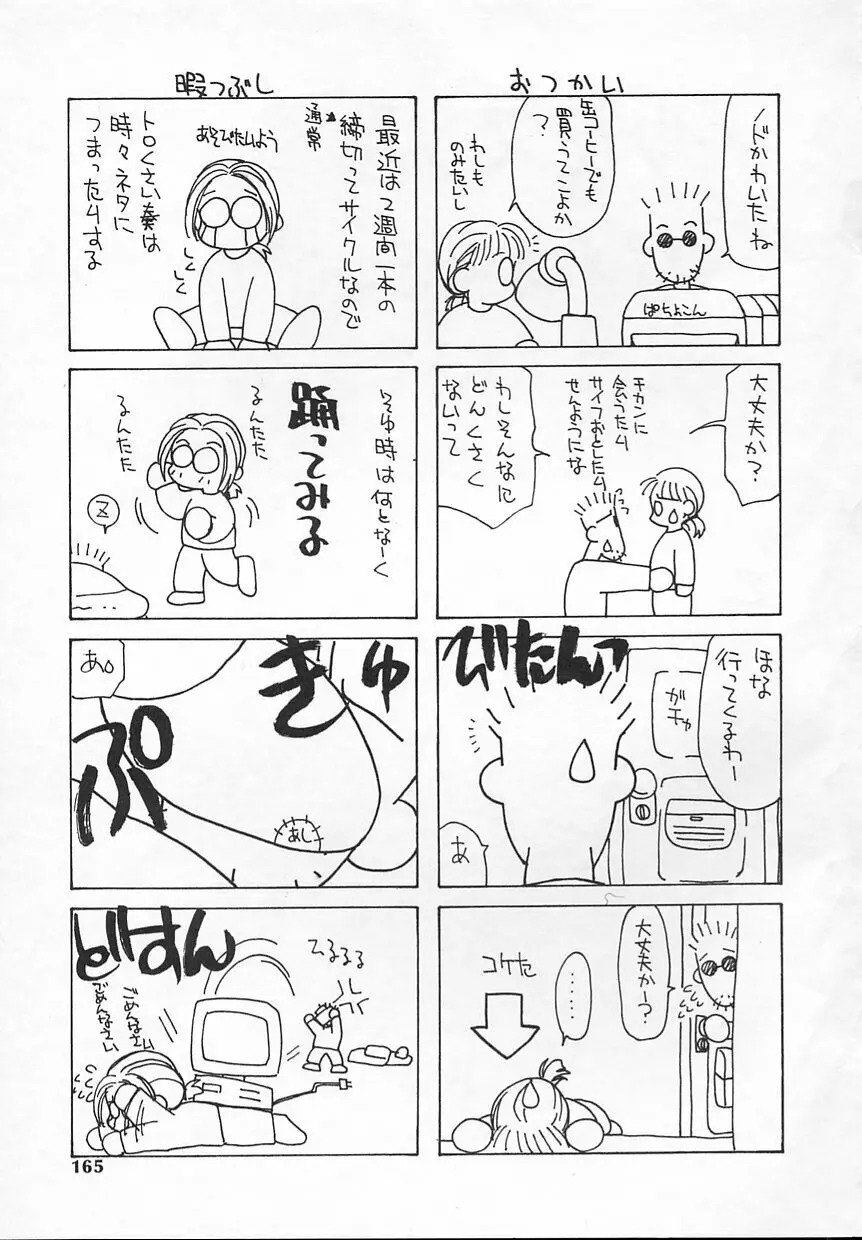 おつかい
ノドかわいたね
缶コーヒーでも
買うてこよか
?
わしも
のみたいし
ぱちょこん
大丈夫か?
チカンに
会うたり
サイフおとしたり
せんようにな
わしそんなに
どんくさく
ないって
ほな
行ってくるわー
ガチャ
びたんっ
あ
大丈夫かー?
……
コケた
暇つぶし
最近は2週間一本の
締切ってサイクルなので
通常
あそびたいよう
トロくさい奏は
時々ネタに
つまったりする
しくしく
そゆ時は何となーく
踊ってみる
るんたた
るんたた
Z
きゅ
ぷ
あ。
あし
どすん
ひるるる
ごめんなさい
ごめんなさい
165